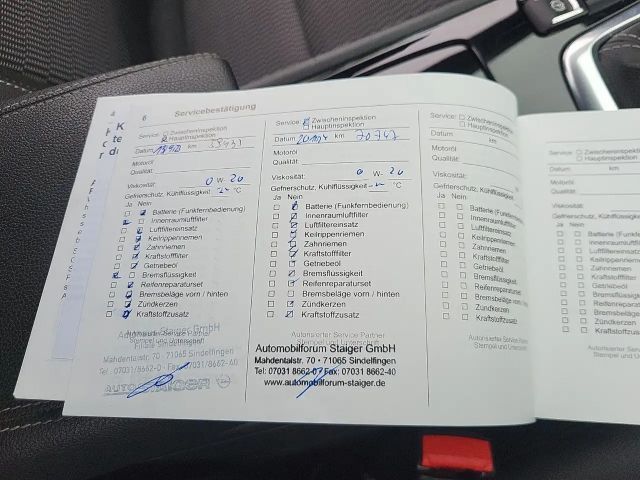 6
Servicebestätigung
Service: Zwischeninspektion
Hauptinspektion
Datum km
Motoröl
Qualität:
Viskosität: 0 W- 20
Gefrierschutz, Kühlflüssigkeit °C
Ja Nein
Batterie (Funkfernbedienung)
Innenraumluftfilter
Luftfiltereinsatz
Keilrippenriemen
Zahnriemen
Kraftstofffilter
Getriebeöl
Bremsflüssigkeit
Reifenreparaturset
Bremsbeläge vorn / hinten
Zündkerzen
Kraftstoffzusatz
Autorisierter Service Partner
Staiger GmbH
Mahdentalstr. 70 · 71065 Sindelfingen
Tel. 07031/8662-0
AUTO STAIGER
Service: Zwischeninspektion
Hauptinspektion
Datum km 70747
Motoröl
Qualität:
Viskosität: 0 W- 20
Gefrierschutz, Kühlflüssigkeit °C
Ja Nein
Batterie (Funkfernbedienung)
Innenraumluftfilter
Luftfiltereinsatz
Keilrippenriemen
Zahnriemen
Kraftstofffilter
Getriebeöl
Bremsflüssigkeit
Reifenreparaturset
Bremsbeläge vorn / hinten
Zündkerzen
Kraftstoffzusatz
Autorisierter Service Partner
Stempel und Unterschrift
Automobilforum Staiger GmbH
Mahdentalstr. 70 • 71065 Sindelfingen
Tel: 07031 8662-0 Fax: 07031 8662-40
www.automobilforum-staiger.de
Service: Zwischeninspektion
Hauptinspektion
Datum km
Motoröl
Qualität:
Viskosität:
Gefrierschutz, Kühlflüssigkeit
Ja Nein
Batterie (Funkfernbedienung)
Innenraumluftfilter
Luftfiltereinsatz
Keilrippenriemen
Zahnriemen
Kraftstofffilter
Getriebeöl
Bremsflüssigkeit
Reifenreparaturset
Bremsbeläge vorn / hinten
Zündkerzen
Kraftstoffzusatz
Autorisierter Service
Stempel und
Service: Zwischeninspektion
Hauptinspektion
Datum km
Motoröl
Qualität:
Viskosität:
Gefrierschutz, Kühlflüssigkeit
Ja Nein
Batterie
Innenraumluftfilter
Luftfiltereinsatz
Keilrippenriemen
Zahnriemen
Kraftstofffilter
Getriebeöl
Bremsflüssigkeit
Reifenreparaturset
Bremsbeläge vorn
Zündkerzen
Kraftstoffzusatz
Autorisierter Service
Stempel und